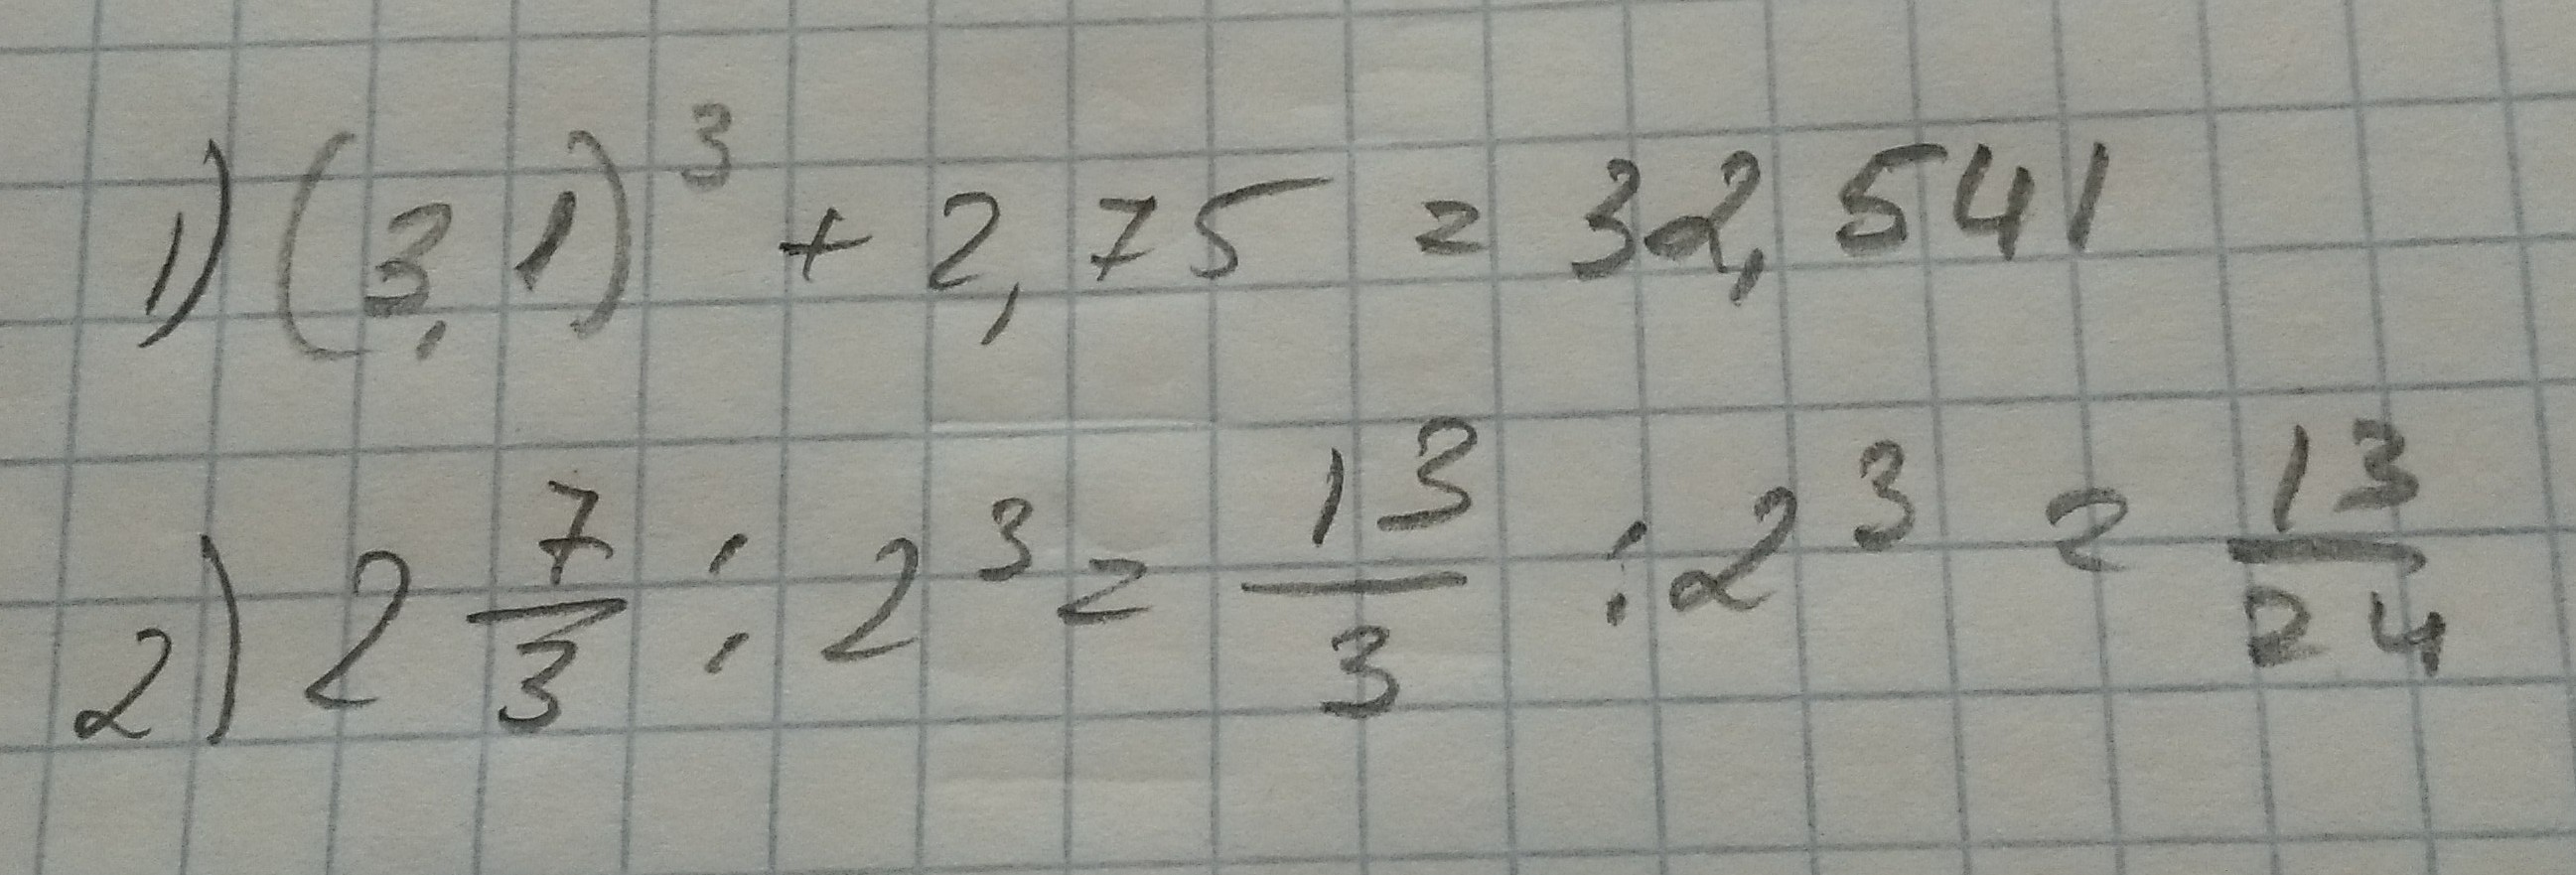 1) (3,1)³ + 2,75 = 32,541
2) 2 7/3 : 2³ = 13/3 : 2³ = 13/24